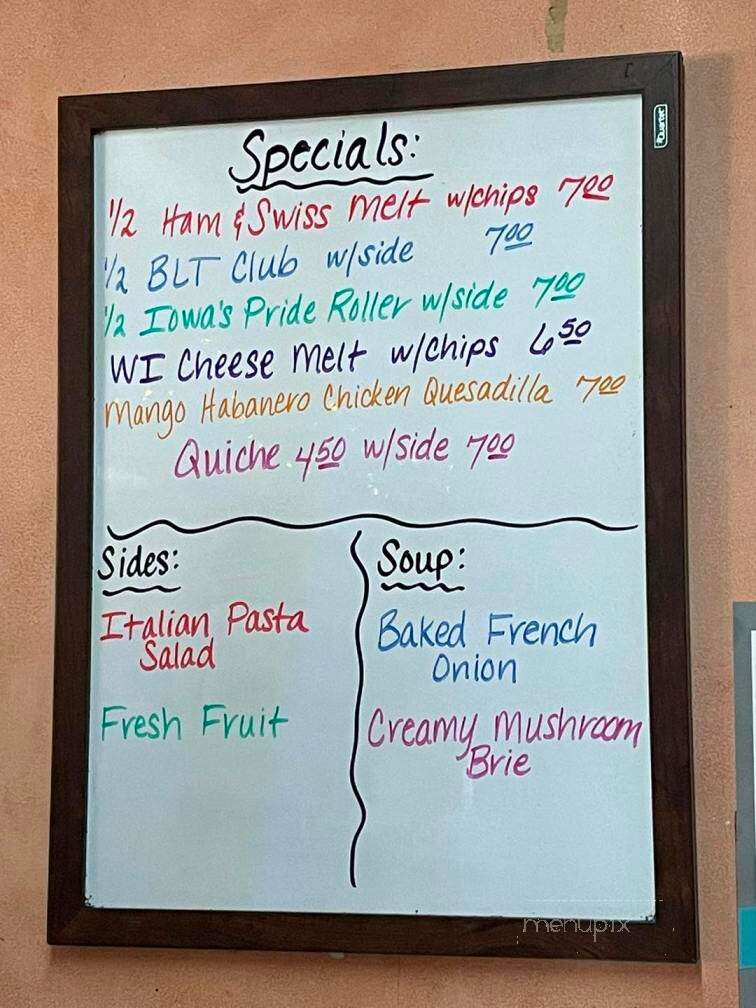 Quartet
Specials:
1/2 Ham & Swiss Melt w/chips 7.00
1/2 BLT Club w/side 7.00
1/2 Iowa's Pride Roller w/side 7.00
WI Cheese Melt w/chips 6.50
Mango Habanero Chicken Quesadilla 7.00
Quiche 4.50 w/side 7.00
Sides:
Italian Pasta
Salad
Fresh Fruit
Soup:
Baked French
Onion
Creamy Mushroom
Brie
menupix